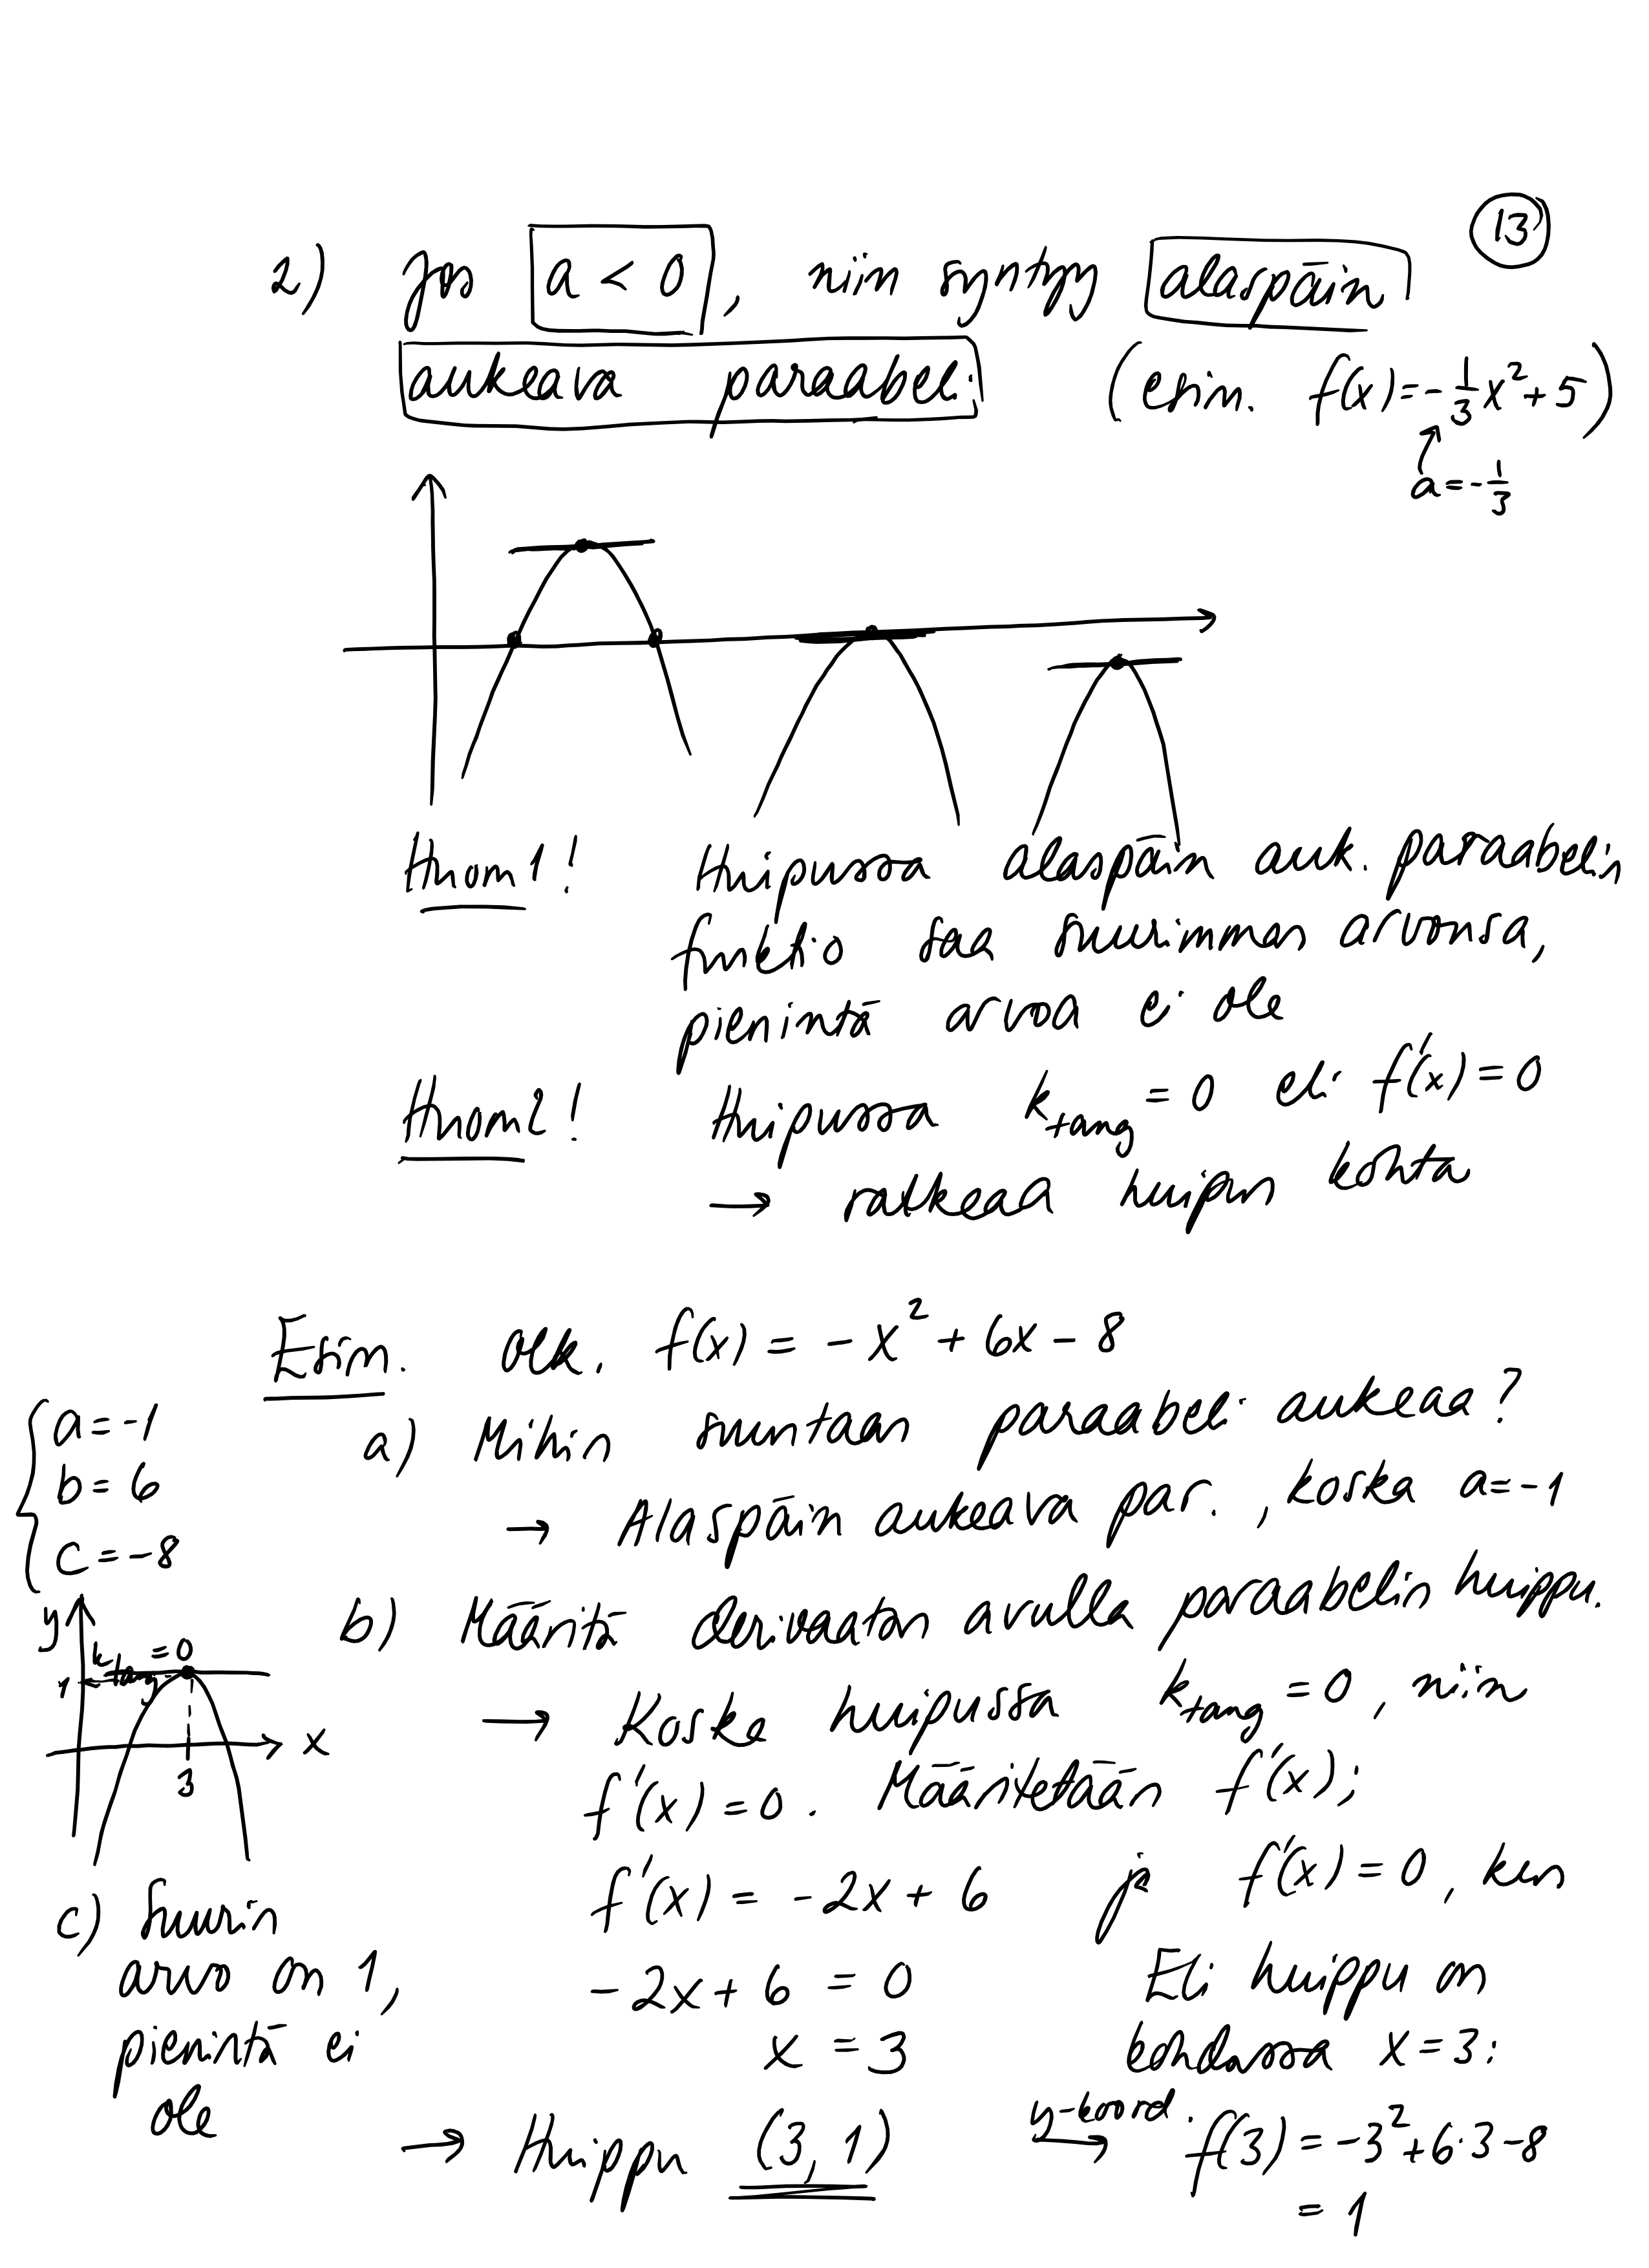 13
2) Jos a < 0, niin syntyy alaspäin
aukeava paraabeli (esim. f(x)=-1/3x²+5)
a=-1/3
Huom1! Huipussa alaspäin auk. paraabelin
funktio saa suurimman arvonsa,
pienintä arvoa ei ole
Huom2! Huipussa k_tang = 0 eli f'(x)=0
→ ratkeaa huipun kohta
Esim. Olk. f(x) = -x² + 6x - 8
a = -1
b = 6
c = -8
a) Mihin suuntaan paraabeli aukeaa?
→ Alaspäin aukeava par., koska a=-1
b) Määritä derivaatan avulla paraabelin huippu.
y
k_tang = 0
1
x
3
→ Koska huipussa k_tang = 0, niin
f'(x)=0. Määritetään f'(x);
f'(x) = -2x + 6 ja f'(x)=0, kun
-2x + 6 = 0
x = 3
Eli huippu on
kohdassa x=3:
y-koord. → f(3) = -3²+6·3-8
= 1
→ Huippu (3, 1)
c) Suurin
arvo on 1,
pienintä ei
ole